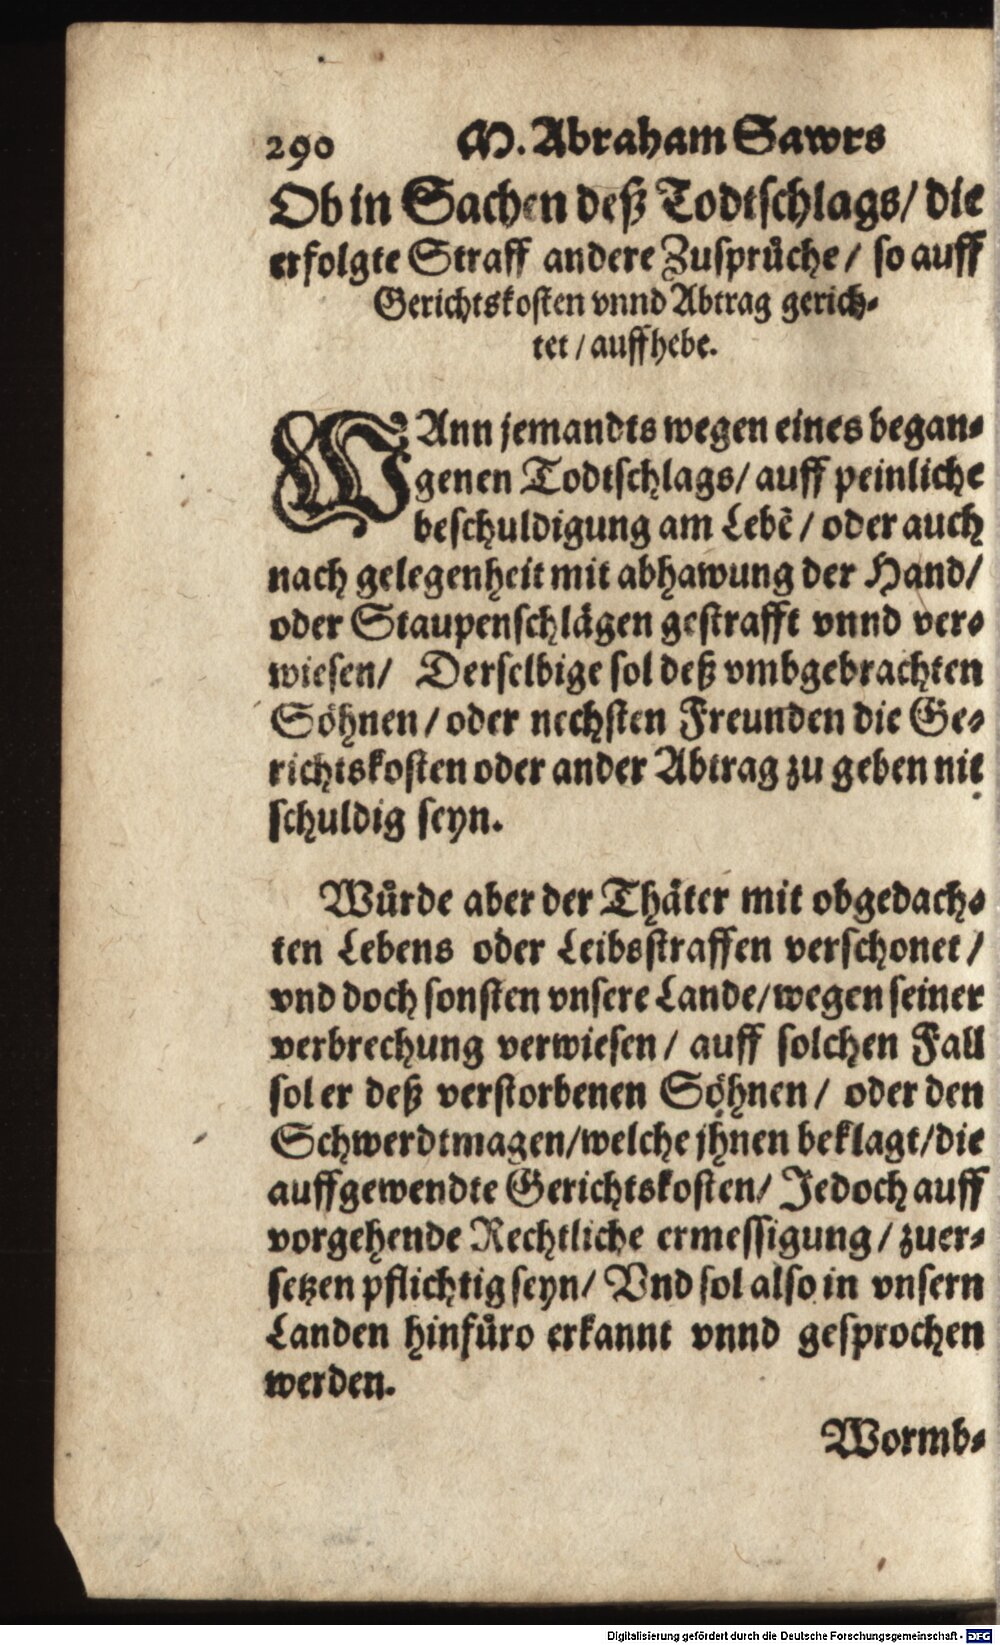 290 M. Abraham Sawrs
Ob in Sachen deß Todtschlags/ die
erfolgte Straff andere Zusprůche/ so auff
Gerichtskosten vnnd Abtrag gerich⸗
tet/ auffhebe.
WAnn jemandts wegen eines began⸗
genen Todtschlags/ auff peinliche
beschuldigung am Lebẽ/ oder auch
nach gelegenheit mit abhawung der Hand/
oder Staupenschlägen gestrafft vnnd ver⸗
wiesen/ Derselbige sol deß vmbgebrachten
Söhnen/ oder nechsten Freunden die Ge⸗
richtskosten oder ander Abtrag zu geben nit
schuldig seyn.
Wůrde aber der Thäter mit obgedach⸗
ten Lebens oder Leibsstraffen verschonet/
vnd doch sonsten vnsere Lande/ wegen seiner
verbrechung verwiesen/ auff solchen Fall
sol er deß verstorbenen Söhnen/ oder den
Schwerdtmagen/ welche jhnen beklagt/ die
auffgewendte Gerichtskosten/ Jedoch auff
vorgehende Rechtliche ermessigung/ zuer⸗
setzen pflichtig seyn/ Vnd sol also in vnsern
Landen hinfůro erkannt vnnd gesprochen
werden.
Wormb⸗
Digitalisierung gefördert durch die Deutsche Forschungsgemeinschaft - DFG